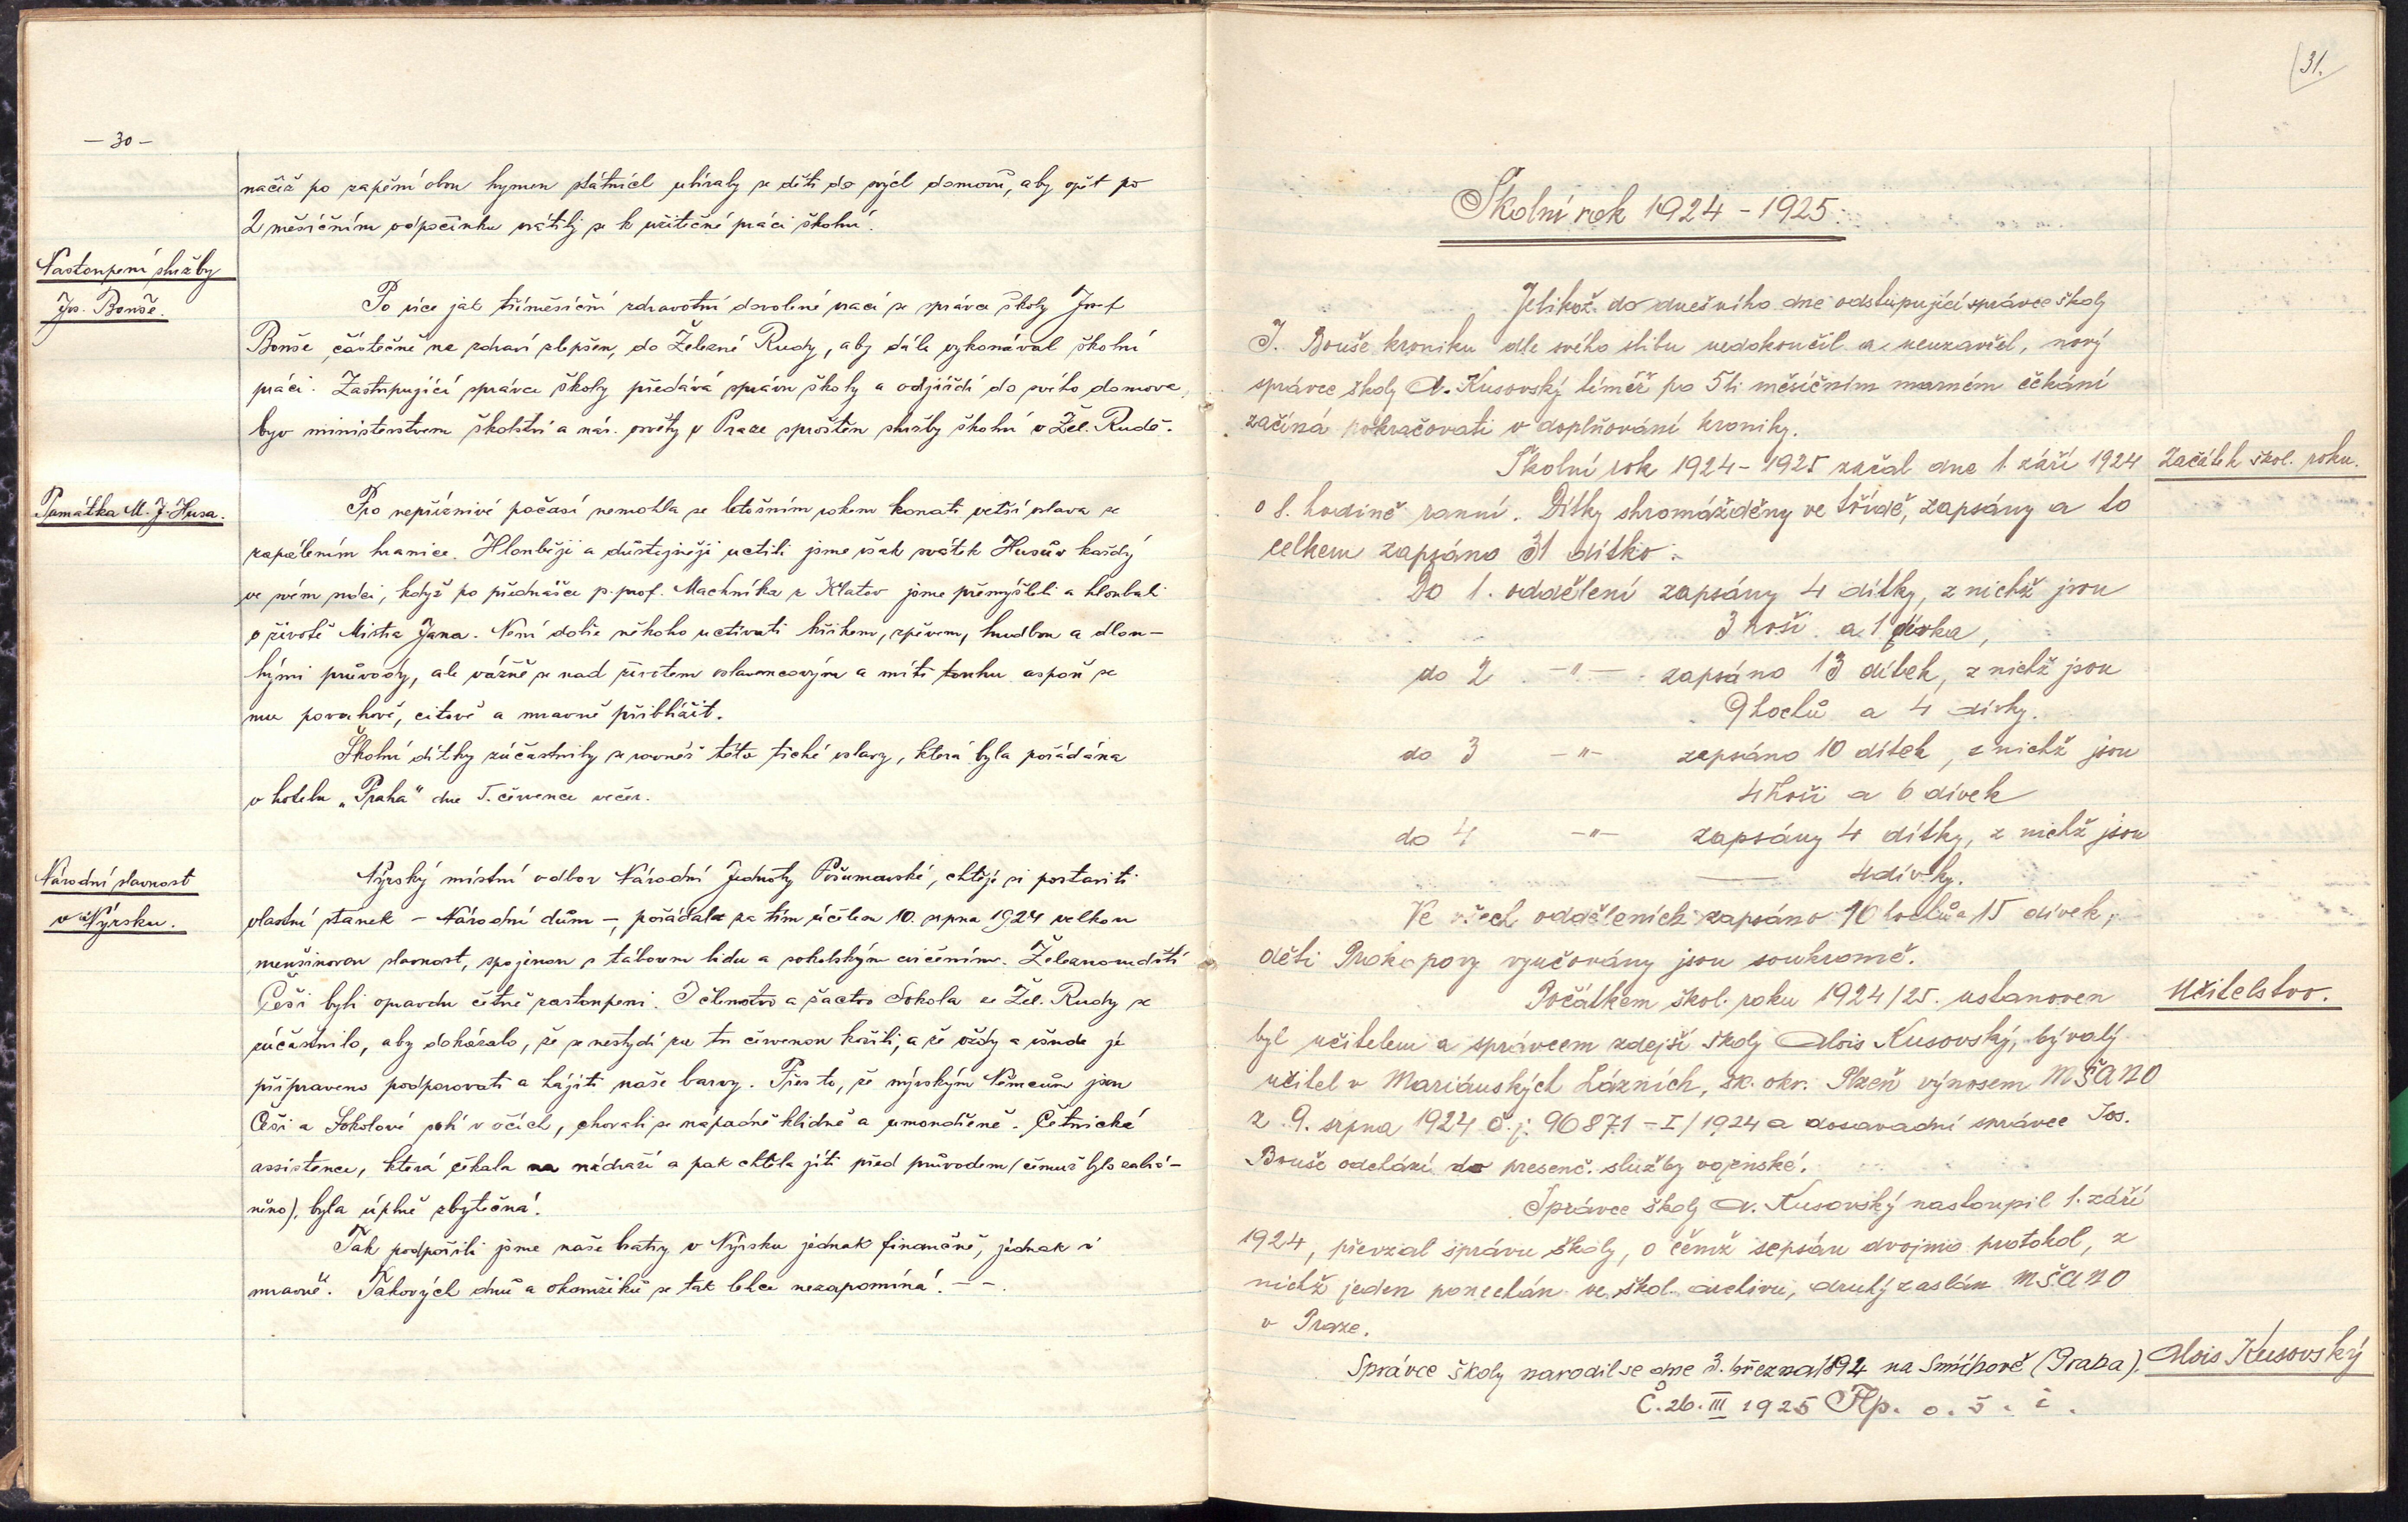 - 30 -
načež po zapění obou hymen státních ubíraly se děti do svých domovů, aby opět po
2 měsíčním odpočinku vrátily se k užitečné práci školní.
Nastoupení služby
Jos. Bouše.
Po více jak tříměsíční zdravotní dovolené vrací se správce školy Josef
Bouše, částečně na zdraví zlepšen, do Železné Rudy, aby dále vykonával školní
práci. Zastupující správce školy předává správu školy a odjíždí do svého domova,
byv ministerstvem školství a nár. osvěty v Praze sproštěn služby školní v Žel. Rudě.
Památka M. J. Husa.
Pro nepříznivé počasí nemohla se letošním rokem konati větší oslava se
zapálením hranice. Hlouběji a důstojněji uctili jsme však svátek Husův každý
ve svém srdci, když po přednášce p. prof. Machníka z Klatov jsme přemýšleli a hloubali
o životě Mistra Jana. Není dobře někoho uctívati křikem, zpěvem, hudbou a dlou-
hými průvody, ale vážně se nad životem oslavencovým a míti touhu aspoň se
mu povahově, citově a mravně přiblížit.
Školní dítky zúčastnily se rovněž této tiché oslavy, která byla pořádána
v hotelu „Praha" dne 5. července večer.
Národní slavnost
v Nýrsku.
Nýrský místní odbor Národní Jednoty Pošumavské, chtěje si postaviti
vlastní stánek - Národní dům -, pořádala za tím účelem 10. srpna 1924 velkou
menšinovou slavnost, spojenou s táborem lidu a sokolským cvičením. Železnorudští
Češi byli opravdu četně zastoupeni. I členstvo a žactvo Sokola ze Žel. Rudy se
zúčastnilo, aby dokázalo, že se nestydí za tu červenou košili, a že vždy a všude je
připraveno podporovati a hájiti naše barvy. Přes to, že nýrským Němcům jsou
Češi a Sokolové solí v očích, chovali se nápadně klidně a umoudřeně. Četnická
assistence, která čekala na nádraží a pak chtěla jíti před průvodem (čemuž bylo zabrá-
něno), byla úplně zbytečná.
Tak podpořili jsme naše bratry v Nýrsku jednak finančně, jednak i
mravně. Takových dnů a okamžiků se tak lehce nezapomíná. - -.
31.
Školní rok 1924 - 1925.
Jelikož do dnešního dne odstupující správce školy
J. Bouše kroniku dle svého slibu nedokončil a neuzavřel, nový
správce školy A. Kusovský téměř po 5ti měsíčním marném čekání
začíná pokračovati v doplňování kroniky.
Školní rok 1924 - 1925 začal dne 1. září 1924
Začátek škol. roku.
o 8. hodině ranní. Dítky shromážděny ve třídě, zapsány a to
celkem zapsáno 31 dítko.
Do 1. oddělení zapsány 4 dítky, z nichž jsou
3 hoši a 1 dívka,
do 2 -"- zapsáno 13 dítek, z nichž jsou
9 hochů a 4 dívky.
do 3 -"- zapsáno 10 dítek, z nichž jsou
4 hoši a 6 dívek
do 4 -"- zapsány 4 dítky, z nichž jsou
— 4 dívky.
Ve všech odděleních zapsáno 16 hochů a 15 dívek,
děti Prokopovy vyučovány jsou soukromě.
Počátkem škol. roku 1924/25. ustanoven
Učitelstvo.
byl učitelem a správcem zdejší školy Alois Kusovský, bývalý
učitel v Mariánských Lázních, šk. okr. Plzeň výnosem MŠANO
z 9. srpna 1924 č. j. 96871 - I/1924 a dosavadní správce Jos.
Bouše odchází do presenč. služby vojenské.
Správce školy A. Kusovský nastoupil 1. září
1924, převzal správu školy, o čemž sepsán dvojmo protokol, z
nichž jeden ponechán ve škol. archivu, druhý zaslán MŠANO
v Praze.
Správce školy narodil se dne 3. března 1894 na Smíchově (Praha).
Alois Kusovský
Č. 26. III 1925